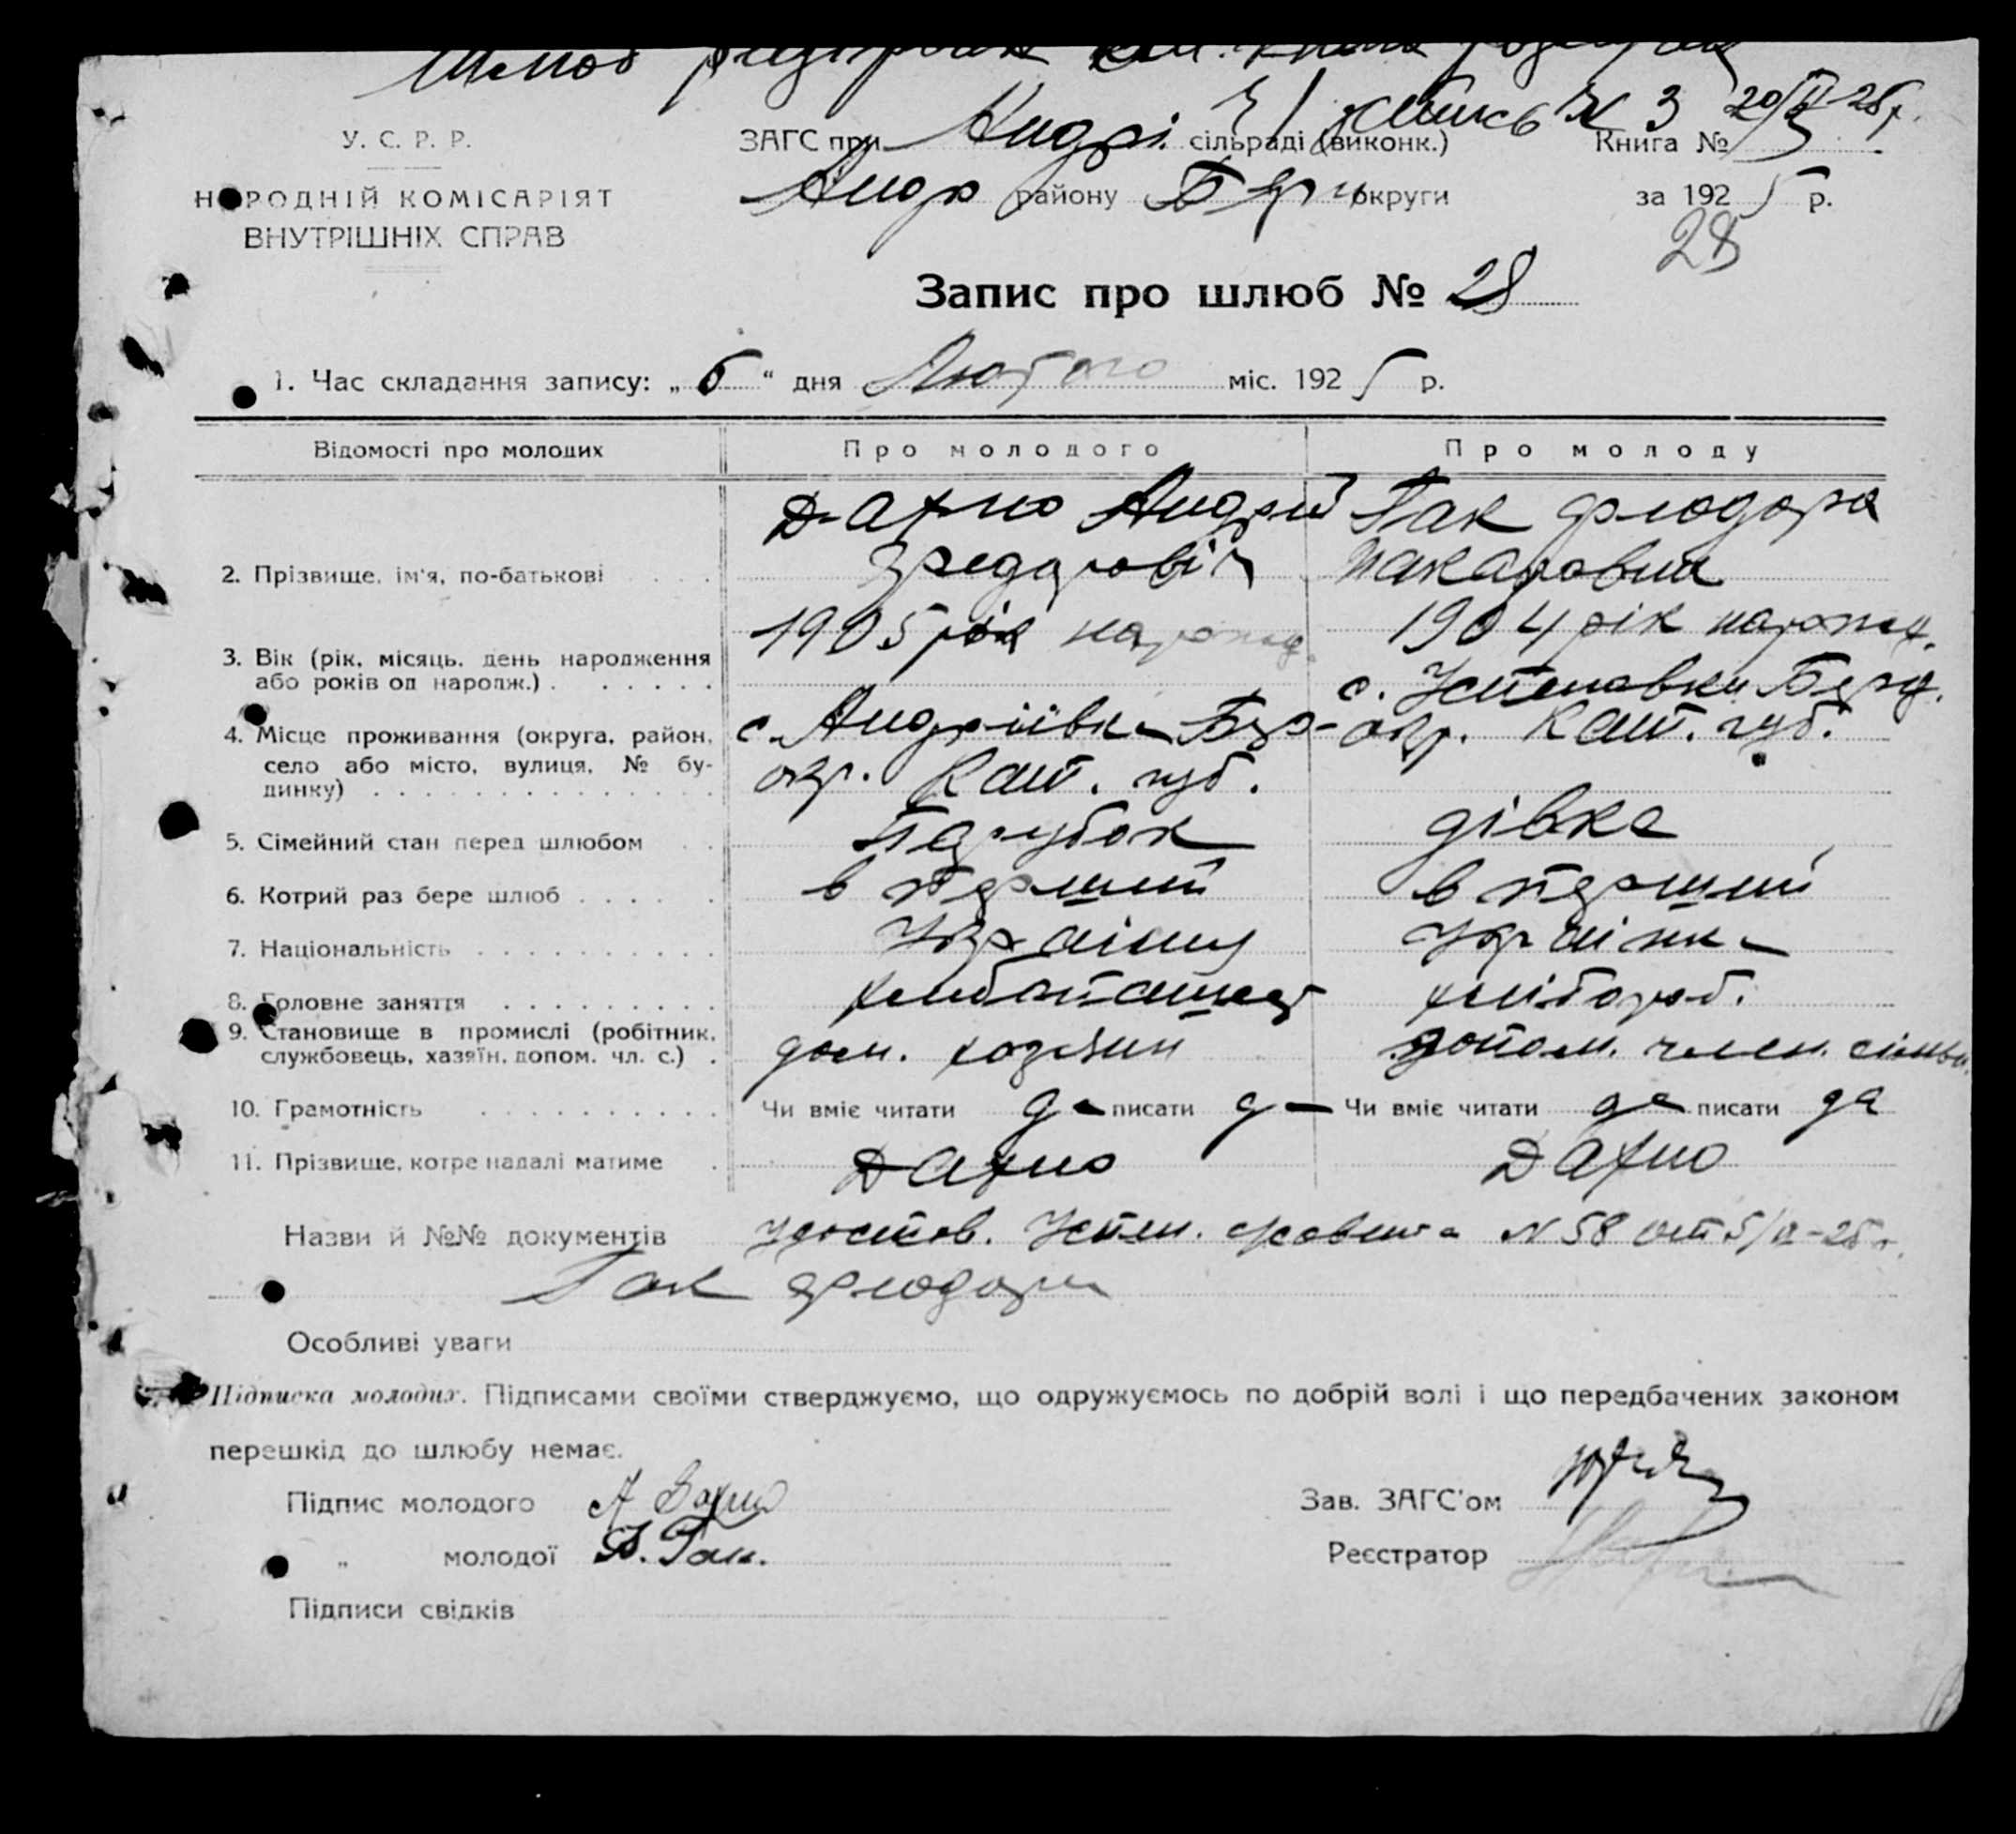 Шлюб
запись № 3 20/II-25 р.
У. С. Р. Р.
НАРОДНІЙ КОМІСАРІЯТ
ВНУТРІШНІХ СПРАВ
ЗАГС при Андрі. сільраді (виконк.) Книга №
Андр району Бер округи за 1925 р.
28
Запис про шлюб № 28
1. Час складання запису: „6“ дня Лютого міс. 1925 р.
Відомості про молодих Про молодого Про молоду
2. Прізвище, ім'я, по-батькові
Дахно Андрий
Федоровіч
Гак Феодора
Макаровна
3. Вік (рік, місяць, день народження
або років од народж.)
1905 рік народж.
1904 рік народж.
4. Місце проживання (округа, район,
село або місто, вулиця, № бу-
динку)
с. Андріївка Бер-
окр. Кат. губ.
с. Успеновки Берд.
окр. Кат. губ.
5. Сімейний стан перед шлюбом Парубок дівка
6. Котрий раз бере шлюб в перший в перший
7. Національність Украінец украінка
8. Головне заняття хлібопашец хлібороб.
9. Становище в промислі (робітник,
службовець, хазяїн, допом. чл. с.)
дом. хозяин
допом. член. сімьи
10. Грамотність Чи вміє читати да писати да Чи вміє читати да писати да
11. Прізвище, котре надалі матиме Дахно Дахно
Назви й №№ документів удостов. Успен. N 58 от 5/II-25 г.
Гак Феодори
Особливі уваги
Підписка молодих. Підписами своїми стверджуємо, що одружуємось по добрій волі і що передбачених законом
перешкід до шлюбу немає.
Підпис молодого А Дахно Зав. ЗАГС'ом
„ молодої Ф. Гак. Реєстратор
Підписи свідків